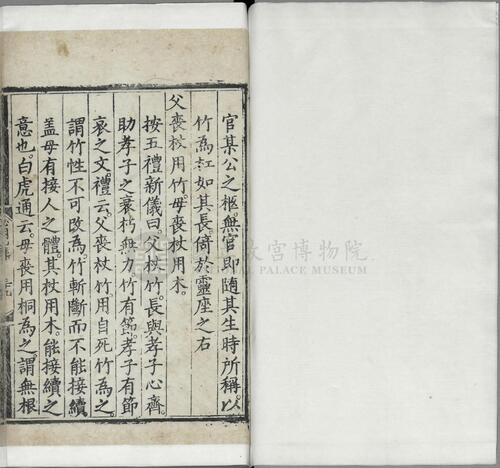 官某公之柩。無官即隨其生時所稱。以
竹為杠如其長倚於靈座之右
父喪杖用竹。母喪杖用木。
按五禮新儀曰。父杖竹。長與孝子心齊。
助孝子之衰朽無力竹有節。孝子有節
哀之文。禮云。父喪杖竹用自死竹為之。
謂竹性不可改為。竹斬斷而不能接續
盖母有接人之體。其杖用木。能接續之
意也。白虎通云。母喪用桐為之。謂無根
故宮博物院
PALACE MUSEUM